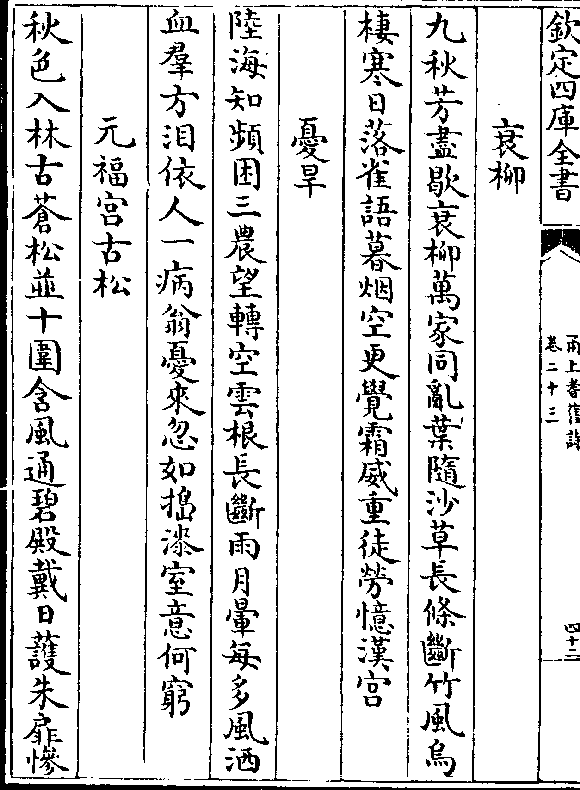 欽定四庫全書
甬上耆舊詩
卷二十三
四十二
衰柳
九秋芳盡歇衰柳萬家同亂葉隨沙草長條斷竹風烏
棲寒日落雀語暮烟空更覺霜威重徒勞憶漢宫
憂旱
陸海知頻困三農望轉空雲根長斷雨月暈每多風洒
血羣方泪依人一病翁憂來忽如搗漆室意何窮
元福宫古松
秋色入林古蒼松並十圍含風通碧殿戴日護朱扉慘